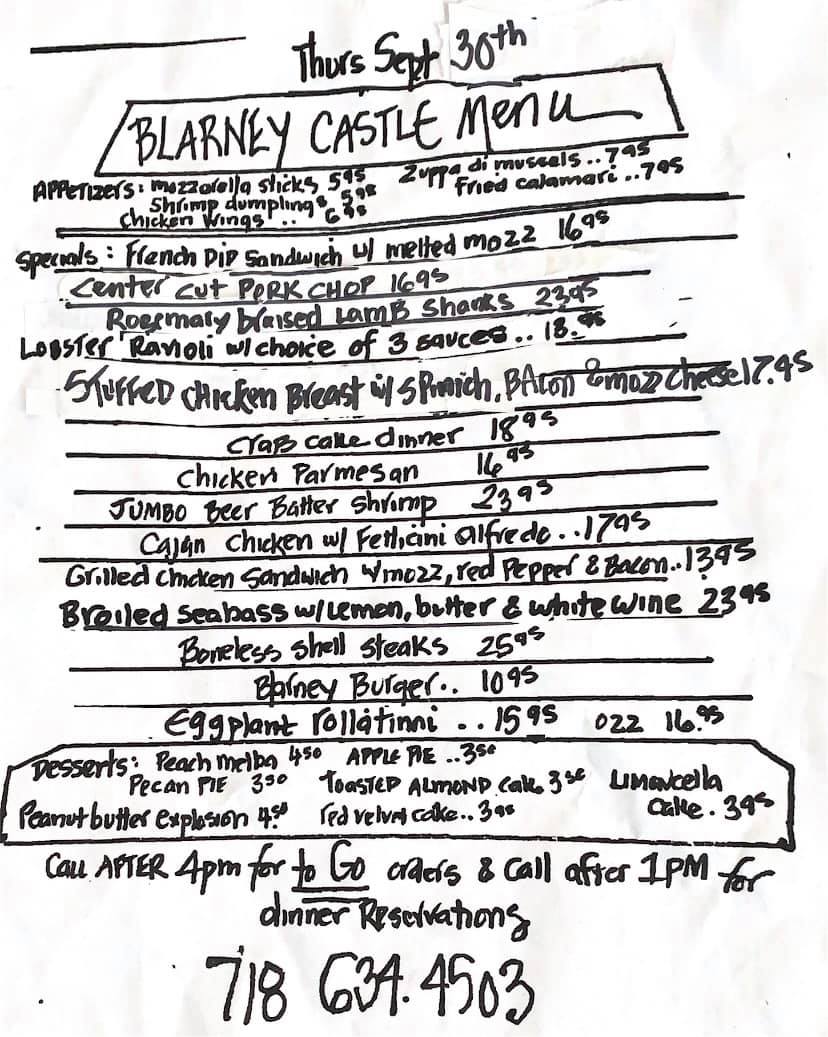 Thurs Sept 30th
BLARNEY CASTLE Menu
APPETIZERS: mozzorella sticks 5.95 Zuppa di mussels..7.95
Shrimp dumplings 5.95 Fried calamari..7.95
Chicken Wings.. 6.95
Specials: French Dip Sandwich w/ melted mozz 16.95
Center cut PORK CHOP 16.95
Rosemary braised LAMB Shanks 23.95
Lobster Ravioli w/choice of 3 sauces.. 18.95
Stuffed Chicken Breast w/ Spinich, Bacon & mozz cheese 17.95
Crab cake dinner 18.95
Chicken Parmesan 16.95
JUMBO Beer Batter Shrimp 23.95
Cajun Chicken w/ Fetticini alfredo..17.95
Grilled chicken Sandwich w/mozz, red Pepper & Bacon..13.95
Broiled Seabass w/Lemon, butter & white wine 23.95
Boneless Shell Steaks 25.95
Blarney Burger.. 10.95
Eggplant rollatinni ..15.95 ozz 16.95
Desserts: Peach melba 4.50 APPLE PIE ..3.50
Pecan PIE 3.50 TOASTED ALMOND Cake 3.50 Limoncella
Peanut butter explosion 4.50 red velvet cake..3.95 Cake. 3.95
Call AFTER 4pm for to Go orders & Call after 1PM for
dinner Reservations
718 634.4503